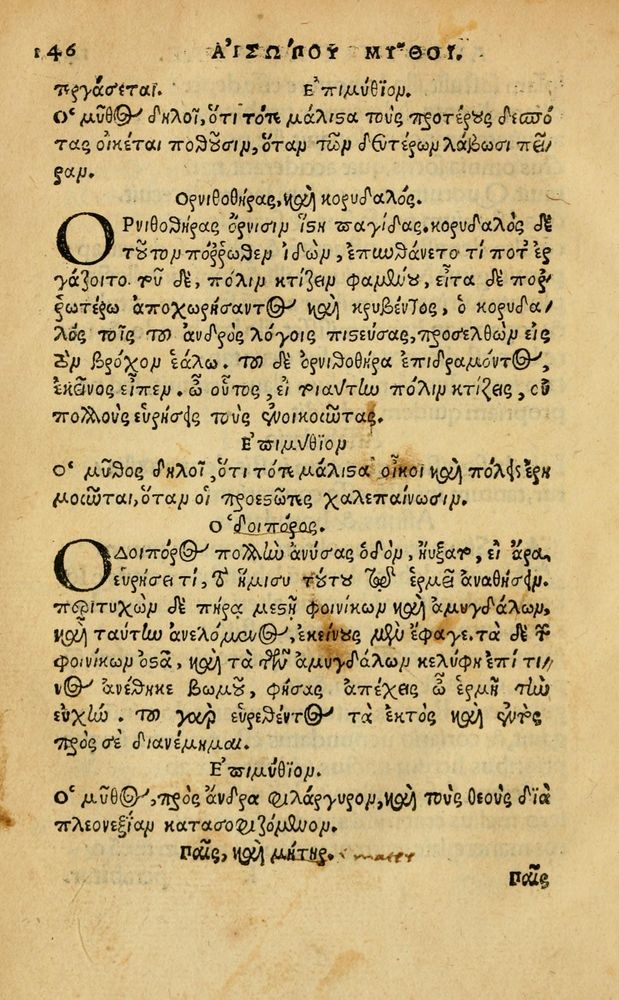 146 ΑἸΣΩΠΟΥ ΜΥ͂ΘΟΙ.
περγάσεται. Ἐπιμύθιον.
Ὁ μῦθος δηλοῖ, ὅτι τότε μάλιστα τοὺς προτέρους δεσπό
τας οἰκέται ποθοῦσιν, ὅταν τῶν δευτέρων λάβωσι πεῖ
ραν.
Ορνιθοθήρας, καὶ κορυδαλός.
ΟΡνιθοθήρας ὄρνισιν ἵστη παγίδας. κορυδαλὸς δὲ
τοῦτον πόῤῥωθεν ἰδὼν, ἐπυνθάνετο τί ποτ' ἐρ
γάζοιτο. τοῦ δὲ, πόλιν κτίζειν φαμένου, εἶτα δὲ ποῤ
ῥωτέρω ἀποχωρήσαντος καὶ κρυβέντος, ὁ κορυδα/
λὸς τοῖς τοῦ ἀνδρὸς λόγοις πιστεύσας, προσελθὼν εἰς
τὸν βρόχον ἑάλω. τοῦ δὲ ὀρνιθοθήρα ἐπιδραμόντος,
ἐκεῖνος εἶπεν. ὦ οὗτος, εἰ τοιαύτην πόλιν κτίζεις, οὐ
πολλοὺς εὑρήσεις τοὺς ἐνοικοῦντας.
Ἐπιμύθιον
Ὁ μῦθος δηλοῖ, ὅτι τότε μάλιστα οἶκοι καὶ πόλεις ἐρη
μοῦνται, ὅταν οἱ προεστῶτες χαλεπαίνωσιν.
Ὁδοιπόρος.
ΟΔοιπόρος πολλὴν ἀνύσας ὁδὸν, ηὔξατο, εἰ ἄρα
εὑρήσει τί, τὸ ἥμισυ τούτου τῷ ἑρμῇ ἀναθήσειν.
περιτυχὼν δὲ πήρᾳ μεστῇ φοινίκων καὶ ἀμυγδάλων,
καὶ ταύτην ἀνελόμενος, ἐκείνους μὲν ἔφαγε. τὰ δὲ τῶν
φοινίκων ὀστᾶ, καὶ τὰ τῶν ἀμυγδάλων κελύφη ἐπί τι/
νος ἀνέθηκε βωμοῦ, φήσας ἀπέχεις ὦ ἑρμῆ τὴν
εὐχήν. τοῦ γὰρ εὑρεθέντος τὰ ἐκτὸς καὶ ἐντὸς
πρὸς σὲ διανέμημαι.
Ἐπιμύθιον.
Ὁ μῦθος, πρὸς ἄνδρα φιλάργυρον, καὶ τοὺς θεοὺς διὰ
πλεονεξίαν κατασοφιζόμενον.
Παῖς, καὶ μήτηρ.
Παῖς